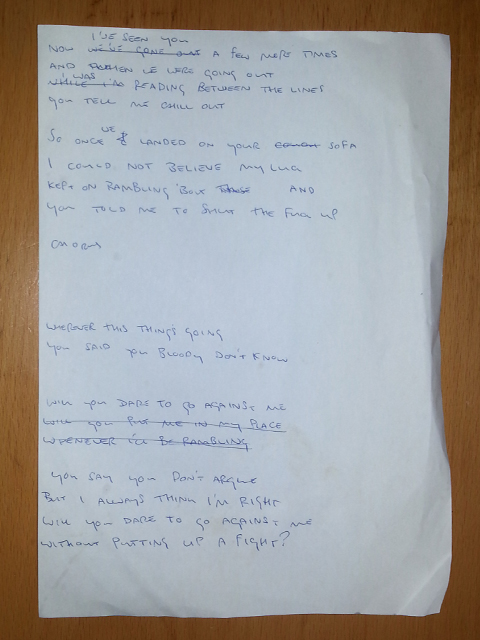 I'VE SEEN YOU
NOW WE'VE GONE OUT A FEW MERE TIMES
AND WHEN WE WERE GOING OUT
I WAS
WHILE I'M READING BETWEEN THE LINES
YOU TELL ME CHILL OUT
WE
SO ONCE I LANDED ON YOUR COUCH SOFA
I COULD NOT BELIEVE MY LUCK
KEPT ON RAMBLING 'BOUT AND
YOU TOLD ME TO SHUT THE FUCK UP
CHORUS
WHEREVER THIS THING'S GOING
YOU SAID YOU BLOODY DON'T KNOW
WILL YOU DARE TO GO AGAINST ME
WILL YOU PUT ME IN MY PLACE
WHENEVER I'LL BE RAMBLING
YOU SAY YOU DON'T ARGUE
BUT I ALWAYS THINK I'M RIGHT
WILL YOU DARE TO GO AGAINST ME
WITHOUT PUTTING UP A FIGHT?